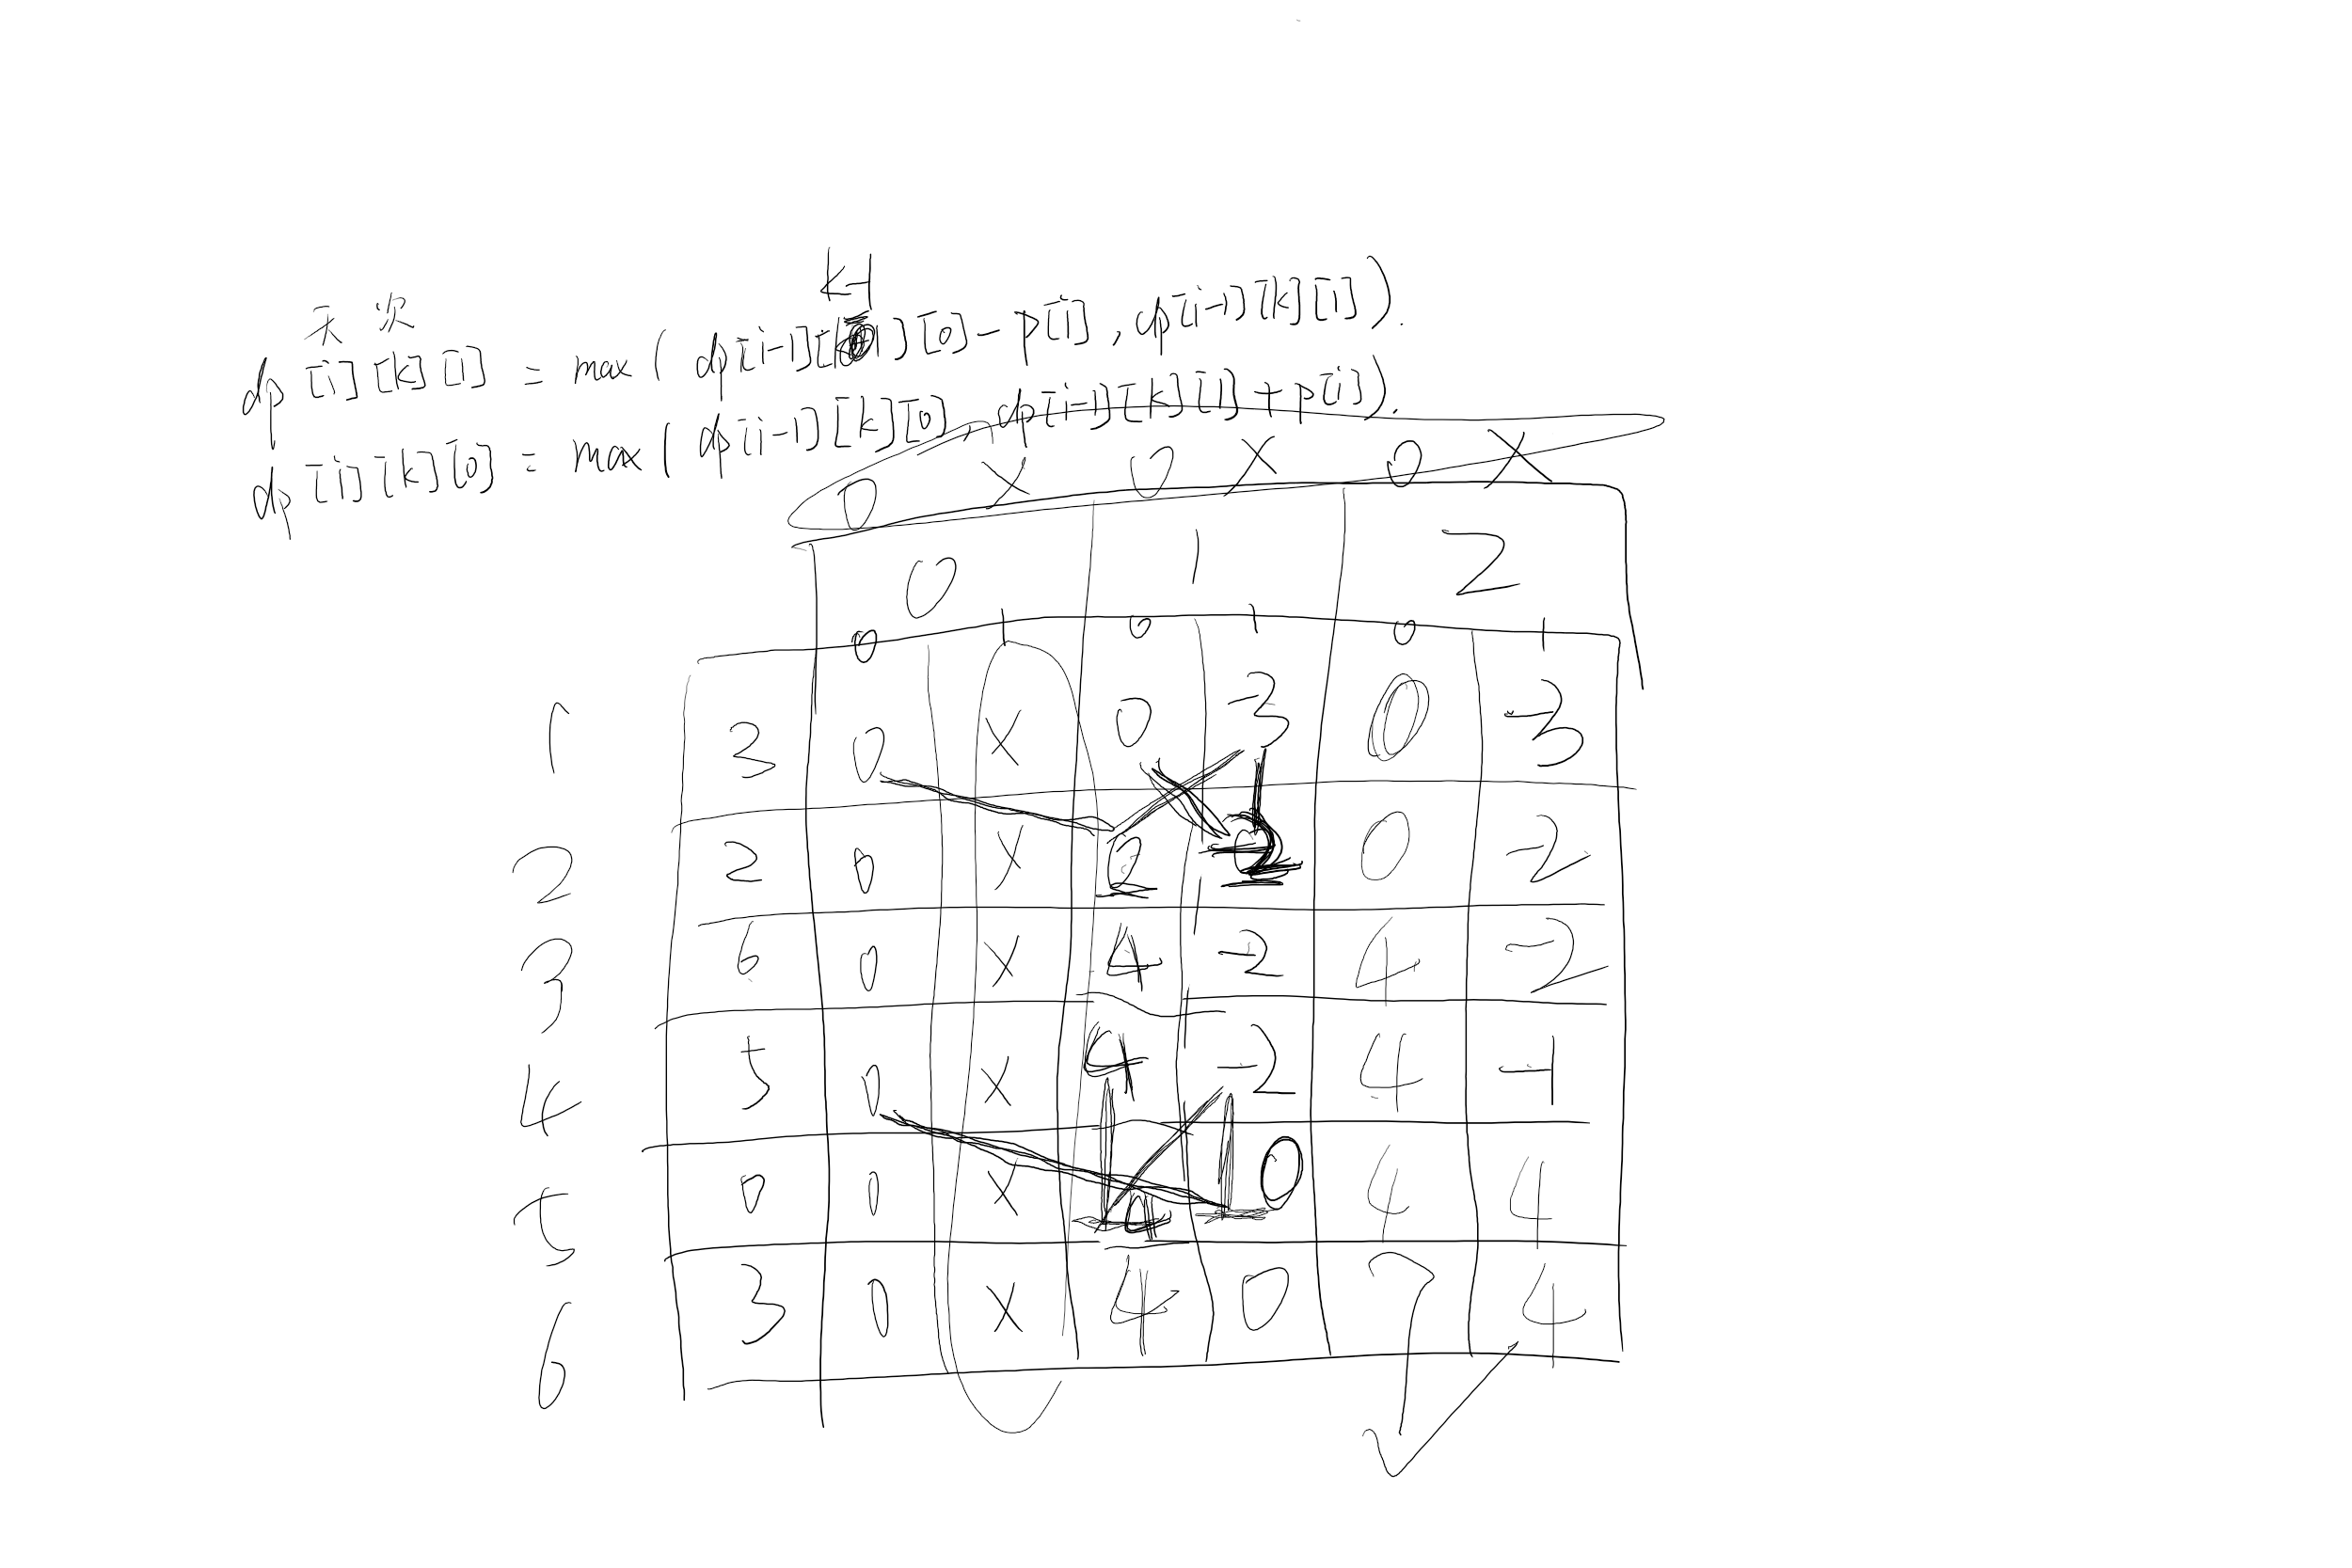 k-1
天 次
dp[i][k][1] = max( dp[i-1][k-1][0] - p[i], dp[i-1][k][1]).
dp[i][k][0] = max( dp[i-1][k][0], dp[i-1][k][1] + p[i]).
0 X 0 X 0 X
0 1 2
0 1 0 1 0 1
1 3 0 X 0 -3 0 -3
2 2 0 X 0 -2 0 -2
3 6 0 X 4 -2 4 -2
4 5 0 X 4 -2 4 -1
5 0 0 X 4 0 4 4
6 3 0 X 4 0 7 4